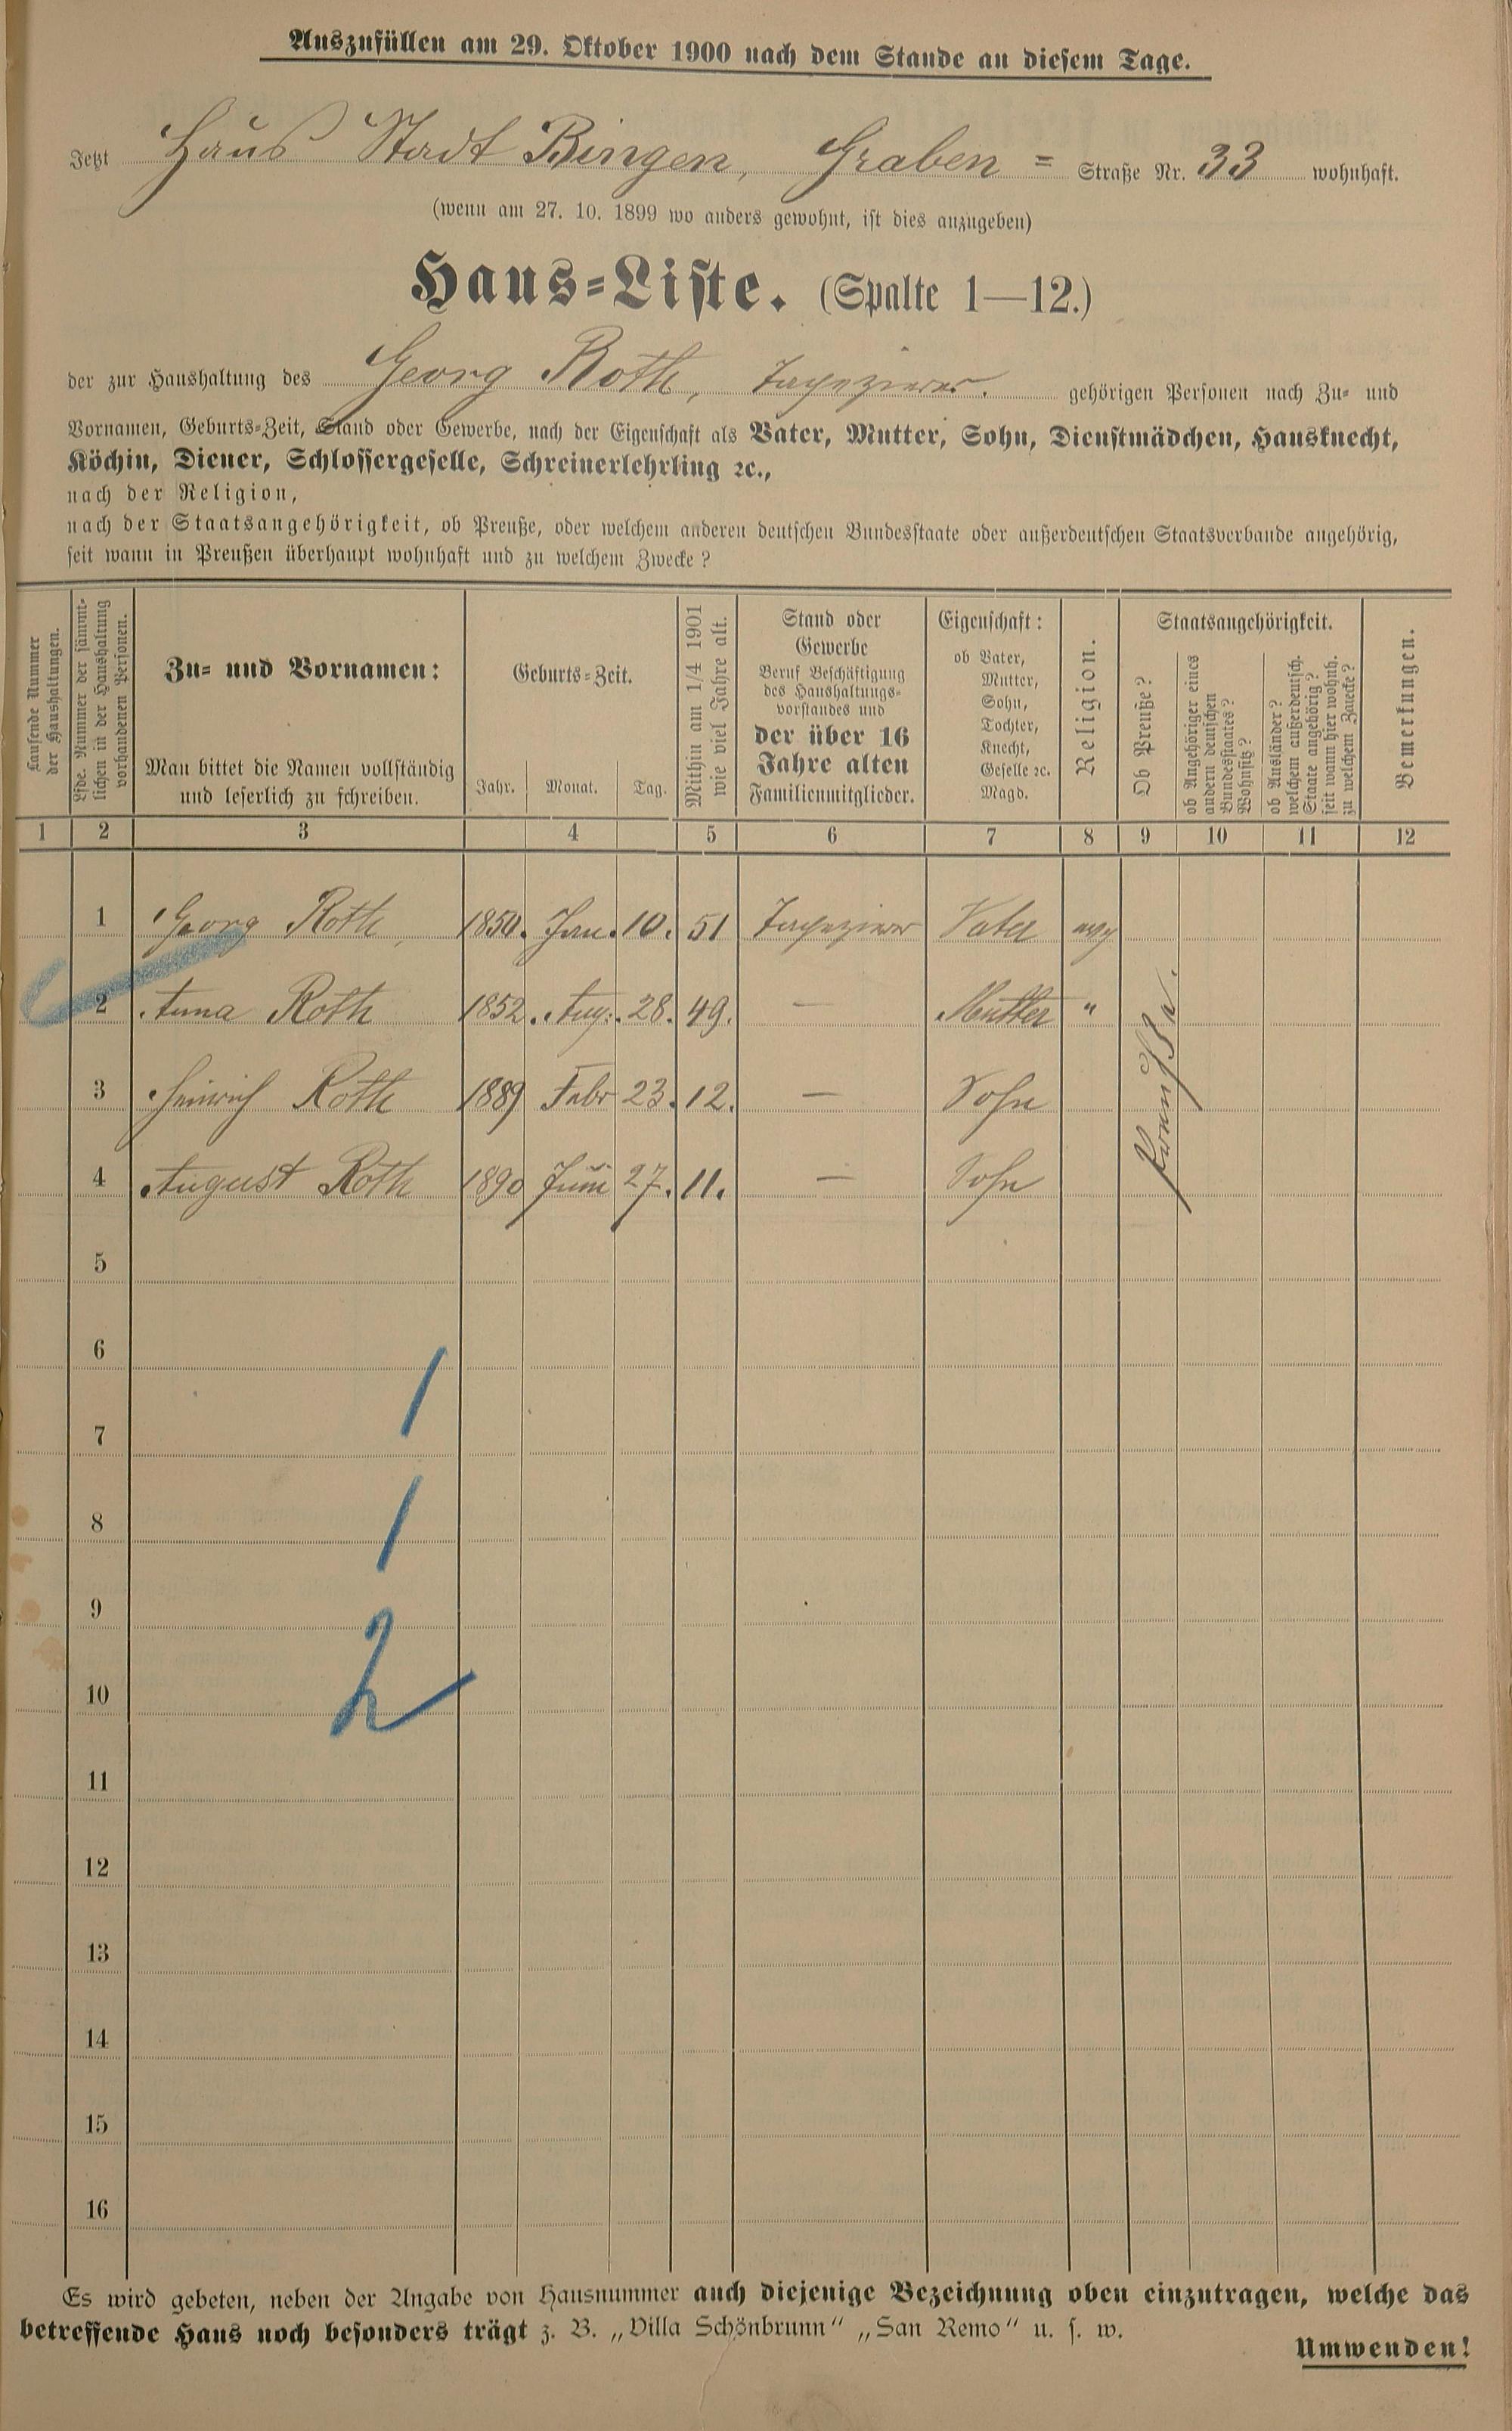 Auszufüllen am 29. Oktober 1900 nach dem Stande an diesem Tage.
Jetzt Haus Stadt Bingen, Graben= Straße Nr. 33 wohnhaft.
(wenn am 27. 10. 1899 wo anders gewohnt, ist dies anzugeben)
Haus=Liste. (Spalte 1—12.)
der zur Haushaltung des Georg Roth, Tapezierer. gehörigen Personen nach Zu= und
Vornamen, Geburts=Zeit, Stand oder Gewerbe, nach der Eigenschaft als Vater, Mutter, Sohn, Dienstmädchen, Hausknecht,
Köchin, Diener, Schlossergeselle, Schreinerlehrling ꝛc.,
nach der Religion,
nach der Staatsangehörigkeit, ob Preuße, oder welchem anderen deutschen Bundesstaate oder außerdeutschen Staatsverbande angehörig,
seit wann in Preußen überhaupt wohnhaft und zu welchem Zwecke?
Laufende Nummer
der Haushaltungen.
Lfde. Nummer der sämmt=
lichen in der Haushaltung
vorhandenen Personen.
Zu= und Vornamen:
Man bittet die Namen vollständig
und leserlich zu schreiben.
Geburts=Zeit.
Jahr. Monat. Tag.
Mithin am 1/4 1901
wie viel Jahre alt.
Stand oder
Gewerbe
Beruf Beschäftigung
des Haushaltungs=
vorstandes und
der über 16
Jahre alten
Familienmitglieder.
Eigenschaft:
ob Vater,
Mutter,
Sohn,
Tochter,
Knecht,
Geselle ꝛc.
Magd.
Religion.
Staatsangehörigkeit.
Ob Preuße?
ob Angehöriger eines
andern deutschen
Bundesstaates?
Wohnsitz?
ob Ausländer?
welchem außerdeutsch.
Staate angehörig?
seit wann hier wohnh.
zu welchem Zwecke?
Bemerkungen.
1 2 3 4 5 6 7 8 9 10 11 12
1 Georg Roth, 1850. Jan. 10. 51 Tapezierer Vater evg
2 Anna Roth 1852. Aug. 28. 49. — Mutter "
3 Heinrich Roth 1889 Febr 23. 12. — Sohn
4 August Roth 1890 Juni 27. 11. — Sohn
Preuße.
5
6
7
8
9
10
11
12
13
14
15
16
1
1
2
Es wird gebeten, neben der Angabe von Hausnummer auch diejenige Bezeichnung oben einzutragen, welche das
betreffende Haus noch besonders trägt z. B. „Villa Schönbrunn“ „San Remo“ u. s. w.
Umwenden!